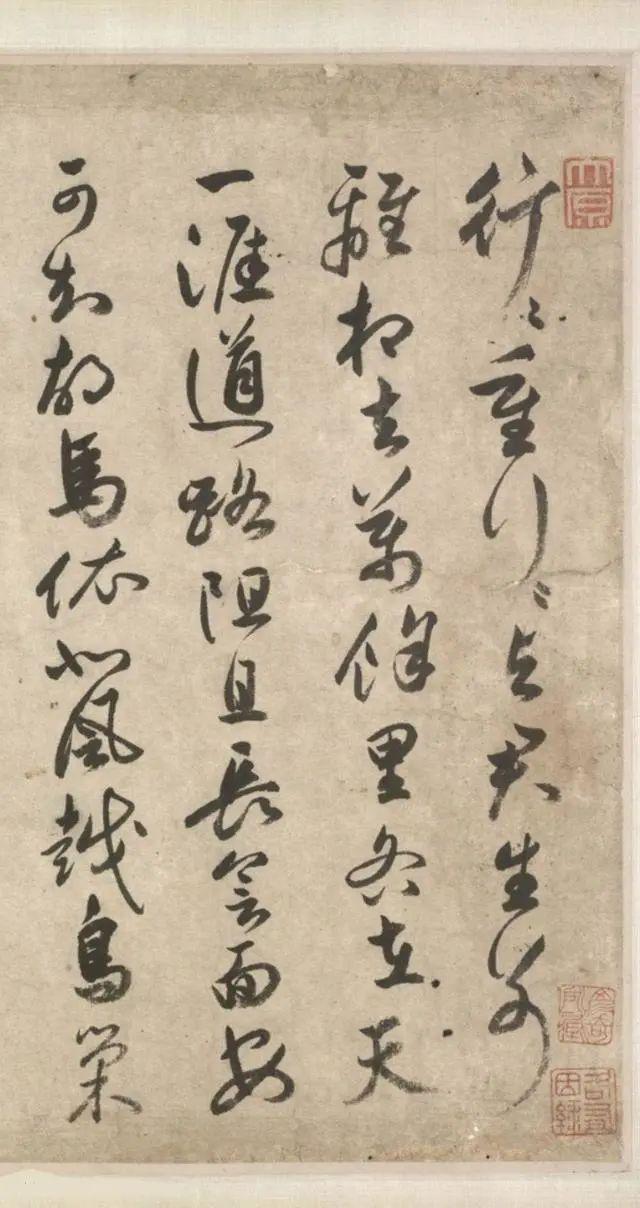 行〻重行〻与君生别
離相去萬餘里各在天
一涯道路阻且長會面安
可知胡馬依北風越鳥巢